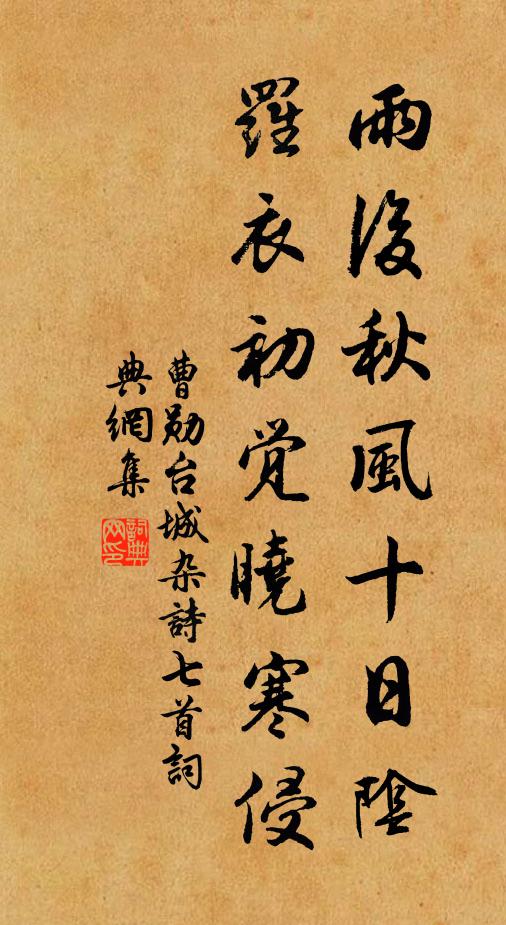 雨後秋風十日陰
羅衣初覺曉寒侵
曹勋台城杂詩七首詞
典網集
詞典网印